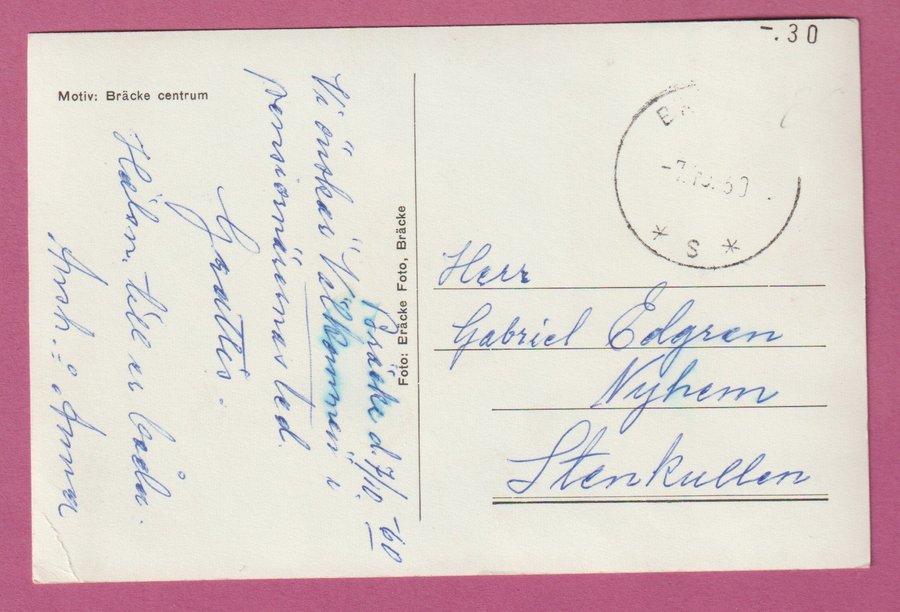 -.30
Motiv: Bräcke centrum
-7.10.60
* S *
Bräcke d. 7/10. -60
Vi önskar Välkommen i
pensionärernas led.
Grattis.
Hälsn. till er båda.
Anna
Foto: Bräcke Foto, Bräcke
Herr
Gabriel Edgren
Nyhem
Stenkullen